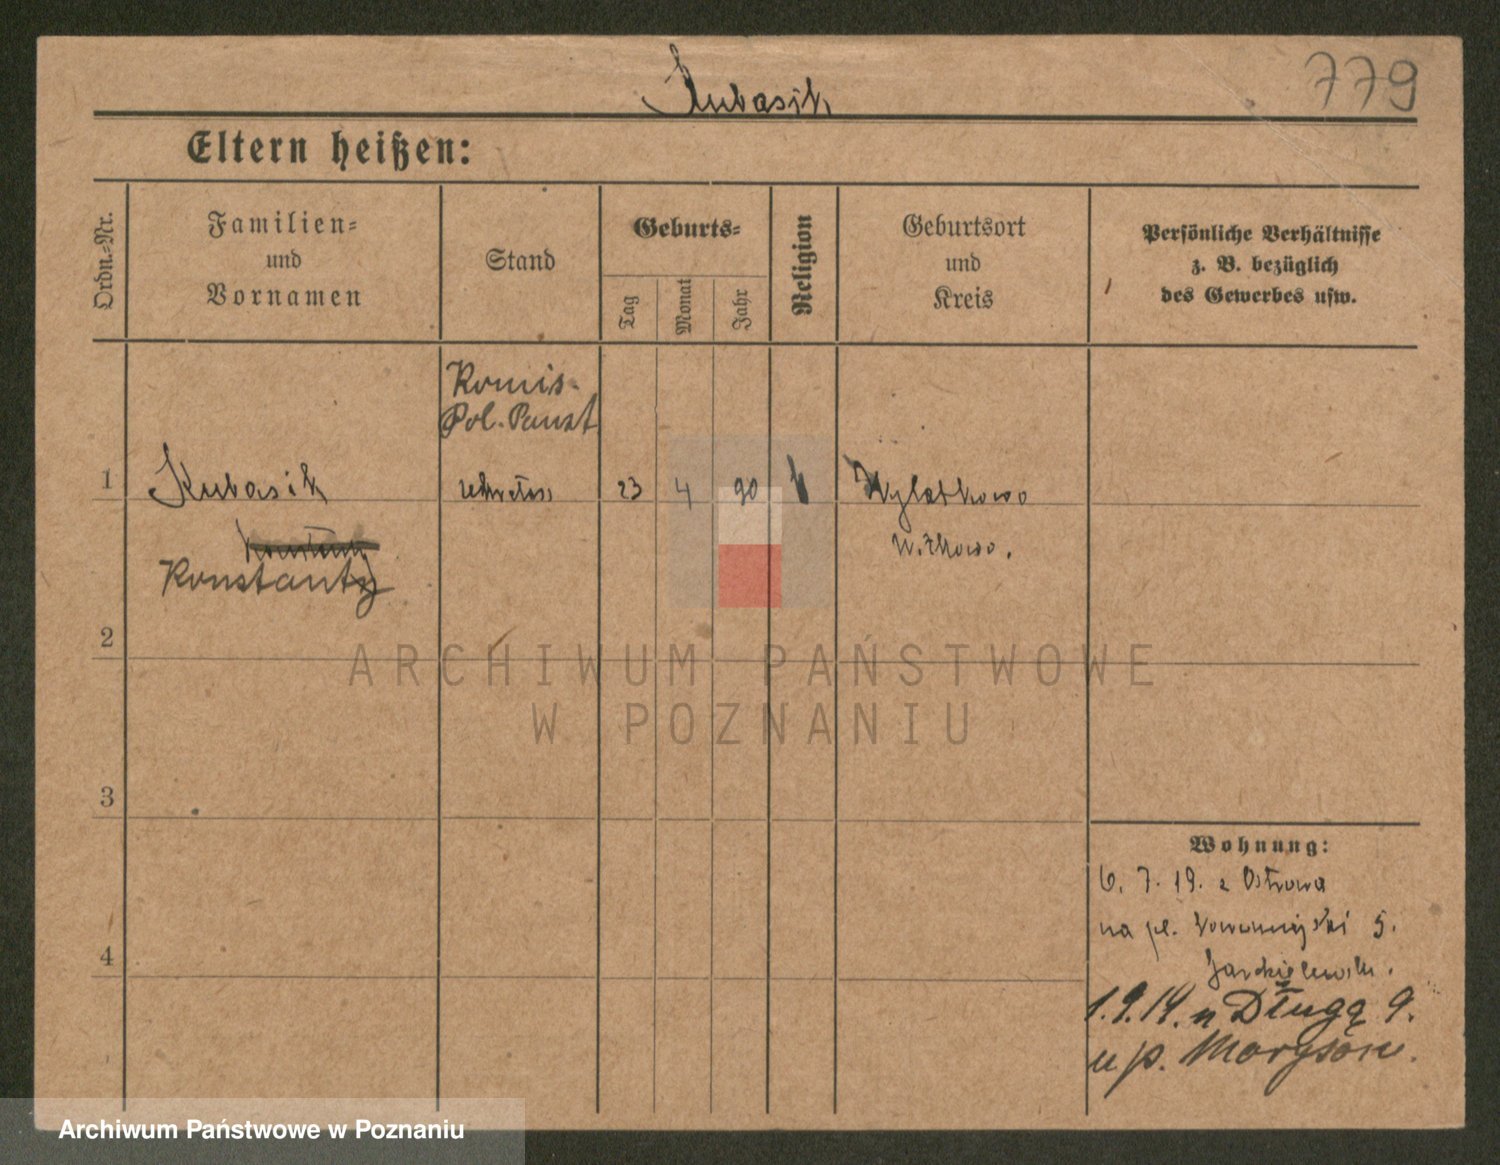 Kubasik
779
Eltern heißen:
Ordn.-Nr.
Familien-
und
Vornamen
Stand
Geburts-
Tag
Monat
Jahr
Religion
Geburtsort
und
Kreis
Persönliche Verhältnisse
z. B. bezüglich
des Gewerbes usw.
Komis-
Pol. Panst
1
Kubasik
23
4
90
k
Wylatkowo
Witkowo.
Konstanty
2
3
4
Wohnung:
6. 7. 19. z Ostrowa
na pl. Nowomiejski 5.
1.9.19. n Długą 9.
u p.
ARCHIWUM PAŃSTWOWE
W POZNANIU
Archiwum Państwowe w Poznaniu